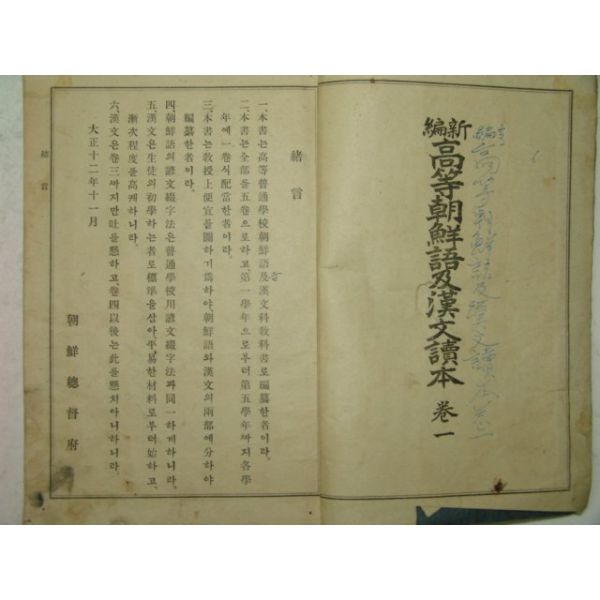 新編
高等朝鮮語及漢文讀本 卷一
高等朝鮮語及漢文讀本卷一
緖言
一、本書는高等普通學校朝鮮語及漢文科敎科書로編纂한者이라。
二、本書는全部를五卷으로하고、第一學年으로부터第五學年까지各學
年에一卷式配當한者이라。
三、本書는敎授上便宜를圖하기爲하야、朝鮮語와漢文의兩部에分하야
編纂한者이라。
四、朝鮮語의諺文綴字法은普通學校用諺文綴字法과同一하게하니라。
五、漢文은生徒의初學하는者로標準을삼아、平易한材料로부터始하고、
漸次程度를高케하니라。
六、漢文은卷三까지만吐를懸하고、卷四以後는此를懸치아니하니라。
大正十二年十一月
朝鮮總督府
緖言